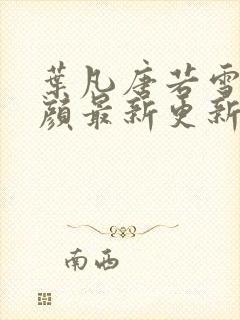 葉凡唐若雪
顏最新更新
南西